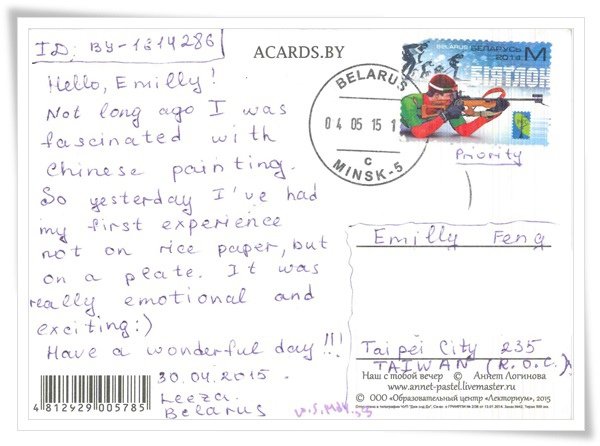 ID: BY-1614286
Hello, Emilly!
Not long ago I was
fascinated with
Chinese painting.
So yesterday I've had
my first experience
not on rice paper, but
on a plate. It was
really emotional and
exciting:)
Have a wonderful day!!!
30.04.2015
Leeza.
Belarus
4812929005785
ACARDS.BY
BELARUS БЕЛАРУСЬ M
2014
БІЯТЛОН
BELARUS
04 05 15 1
C
MINSK-5
Priority
Emilly Feng
Taipei City 235
TAIWAN (R.O.C.)
Наш с тобой вечер © Аннет Логинова
www.annet-pastel.livemaster.ru
© ООО «Образовательный центр «Лекториум», 2015